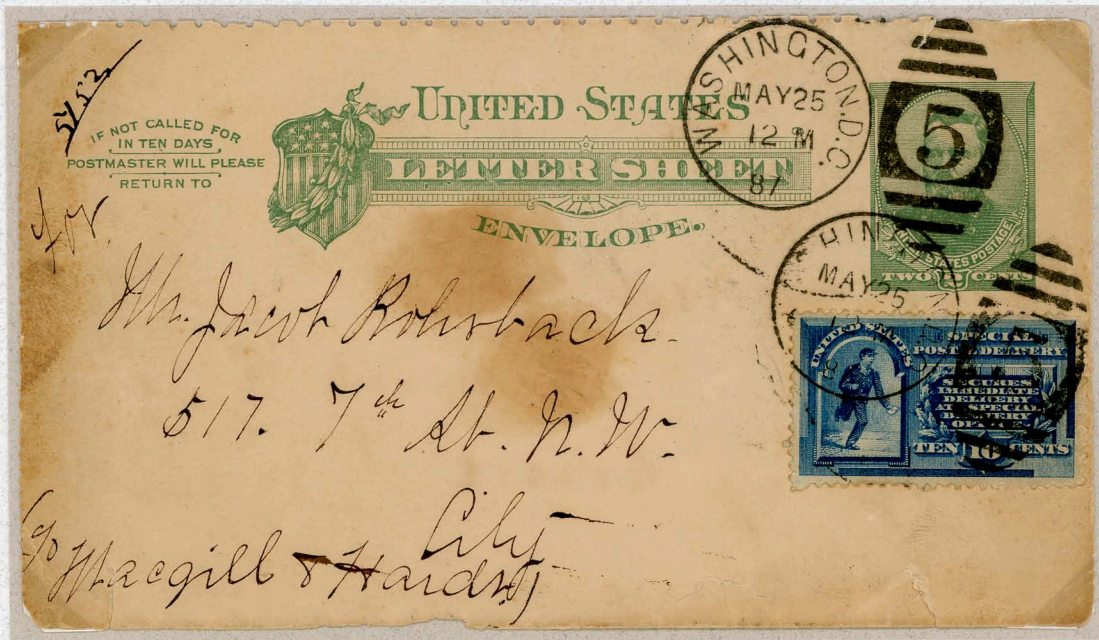 5452
IF NOT CALLED FOR
IN TEN DAYS
POSTMASTER WILL PLEASE
RETURN TO
UNITED STATES
LETTER SHEET
ENVELOPE.
WASHINGTON.D.C.
MAY 25
12 M
87
5
UNITED STATES POSTAGE
TWO 2 CENTS
MAY 25
UNITED STATES
SPECIAL
POSTAL DELIVERY
SECURES
IMMEDIATE
DELIVERY
AT A SPECIAL
DELIVERY
OFFICE
TEN 10 CENTS
for
Mr. Jacob Rohrback.
517. 7th St. N. W.
City
c/o Macgill & Hardsty